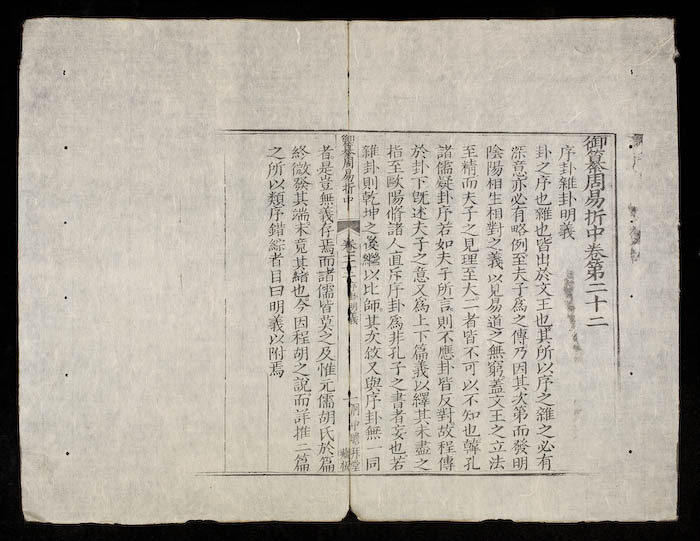 御纂周易折中卷第二十二
序卦雜卦明義
卦之序也雜也皆出於文王也其所以序之雜之必有
深意亦必有略例至夫子爲之傳乃因其次第而發明
陰陽相生相對之義以見易道之無窮蓋文王之立法
至精而夫子之見理至大二者皆不可以不知也韓孔
諸儒疑卦序若如夫子所言則不應卦皆反對故程傳
於卦下旣述夫子之意又爲上下篇義以繹其未盡之
指至歐陽脩諸人直斥序卦爲非孔子之書者妄也若
雜卦則乾坤之後繼以比師其次敘又與序卦無一同
御纂周易折中 卷二十二 明義 一
者是豈無義存焉而諸儒皆莫之及惟元儒胡氏於篇
終微發其端未竟其緒也今因程胡之說而詳推二篇
之所以類序錯綜者目曰明義以附焉